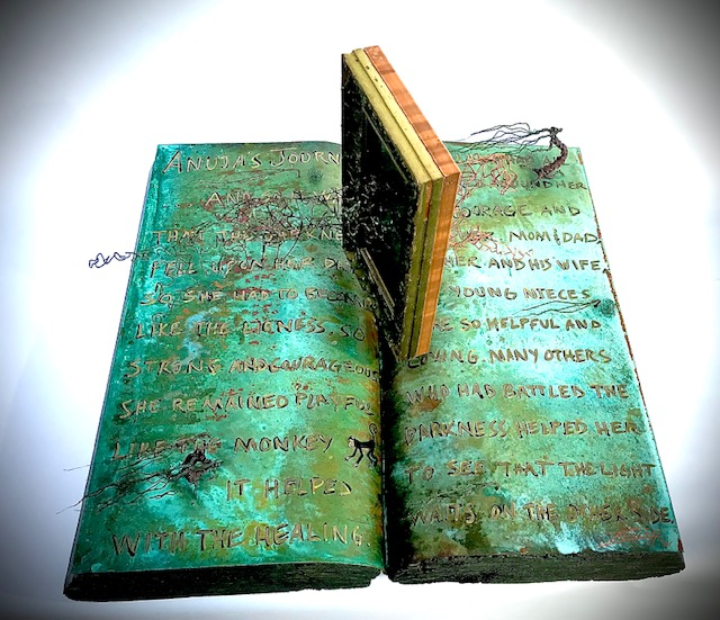 ANUJA'S JOURN
THAT THE DARKNE
FELL UPON HER
SO SHE HAD TO BECOME
LIKE THE LIONESS. SO
STRONG AND COURAGEOUS
SHE REMAINED PLAYFUL
LIKE THE MONKEY
IT HELPED
WITH THE HEALING
AND
MOM & DAD,
HER AND HIS WIFE,
YOUNG NIECES
SO HELPFUL AND
LOVING. MANY OTHERS
WHO HAD BATTLED THE
DARKNESS HELPED HER
TO SEE THAT THE LIGHT
WAITS ON THE OTHER SIDE